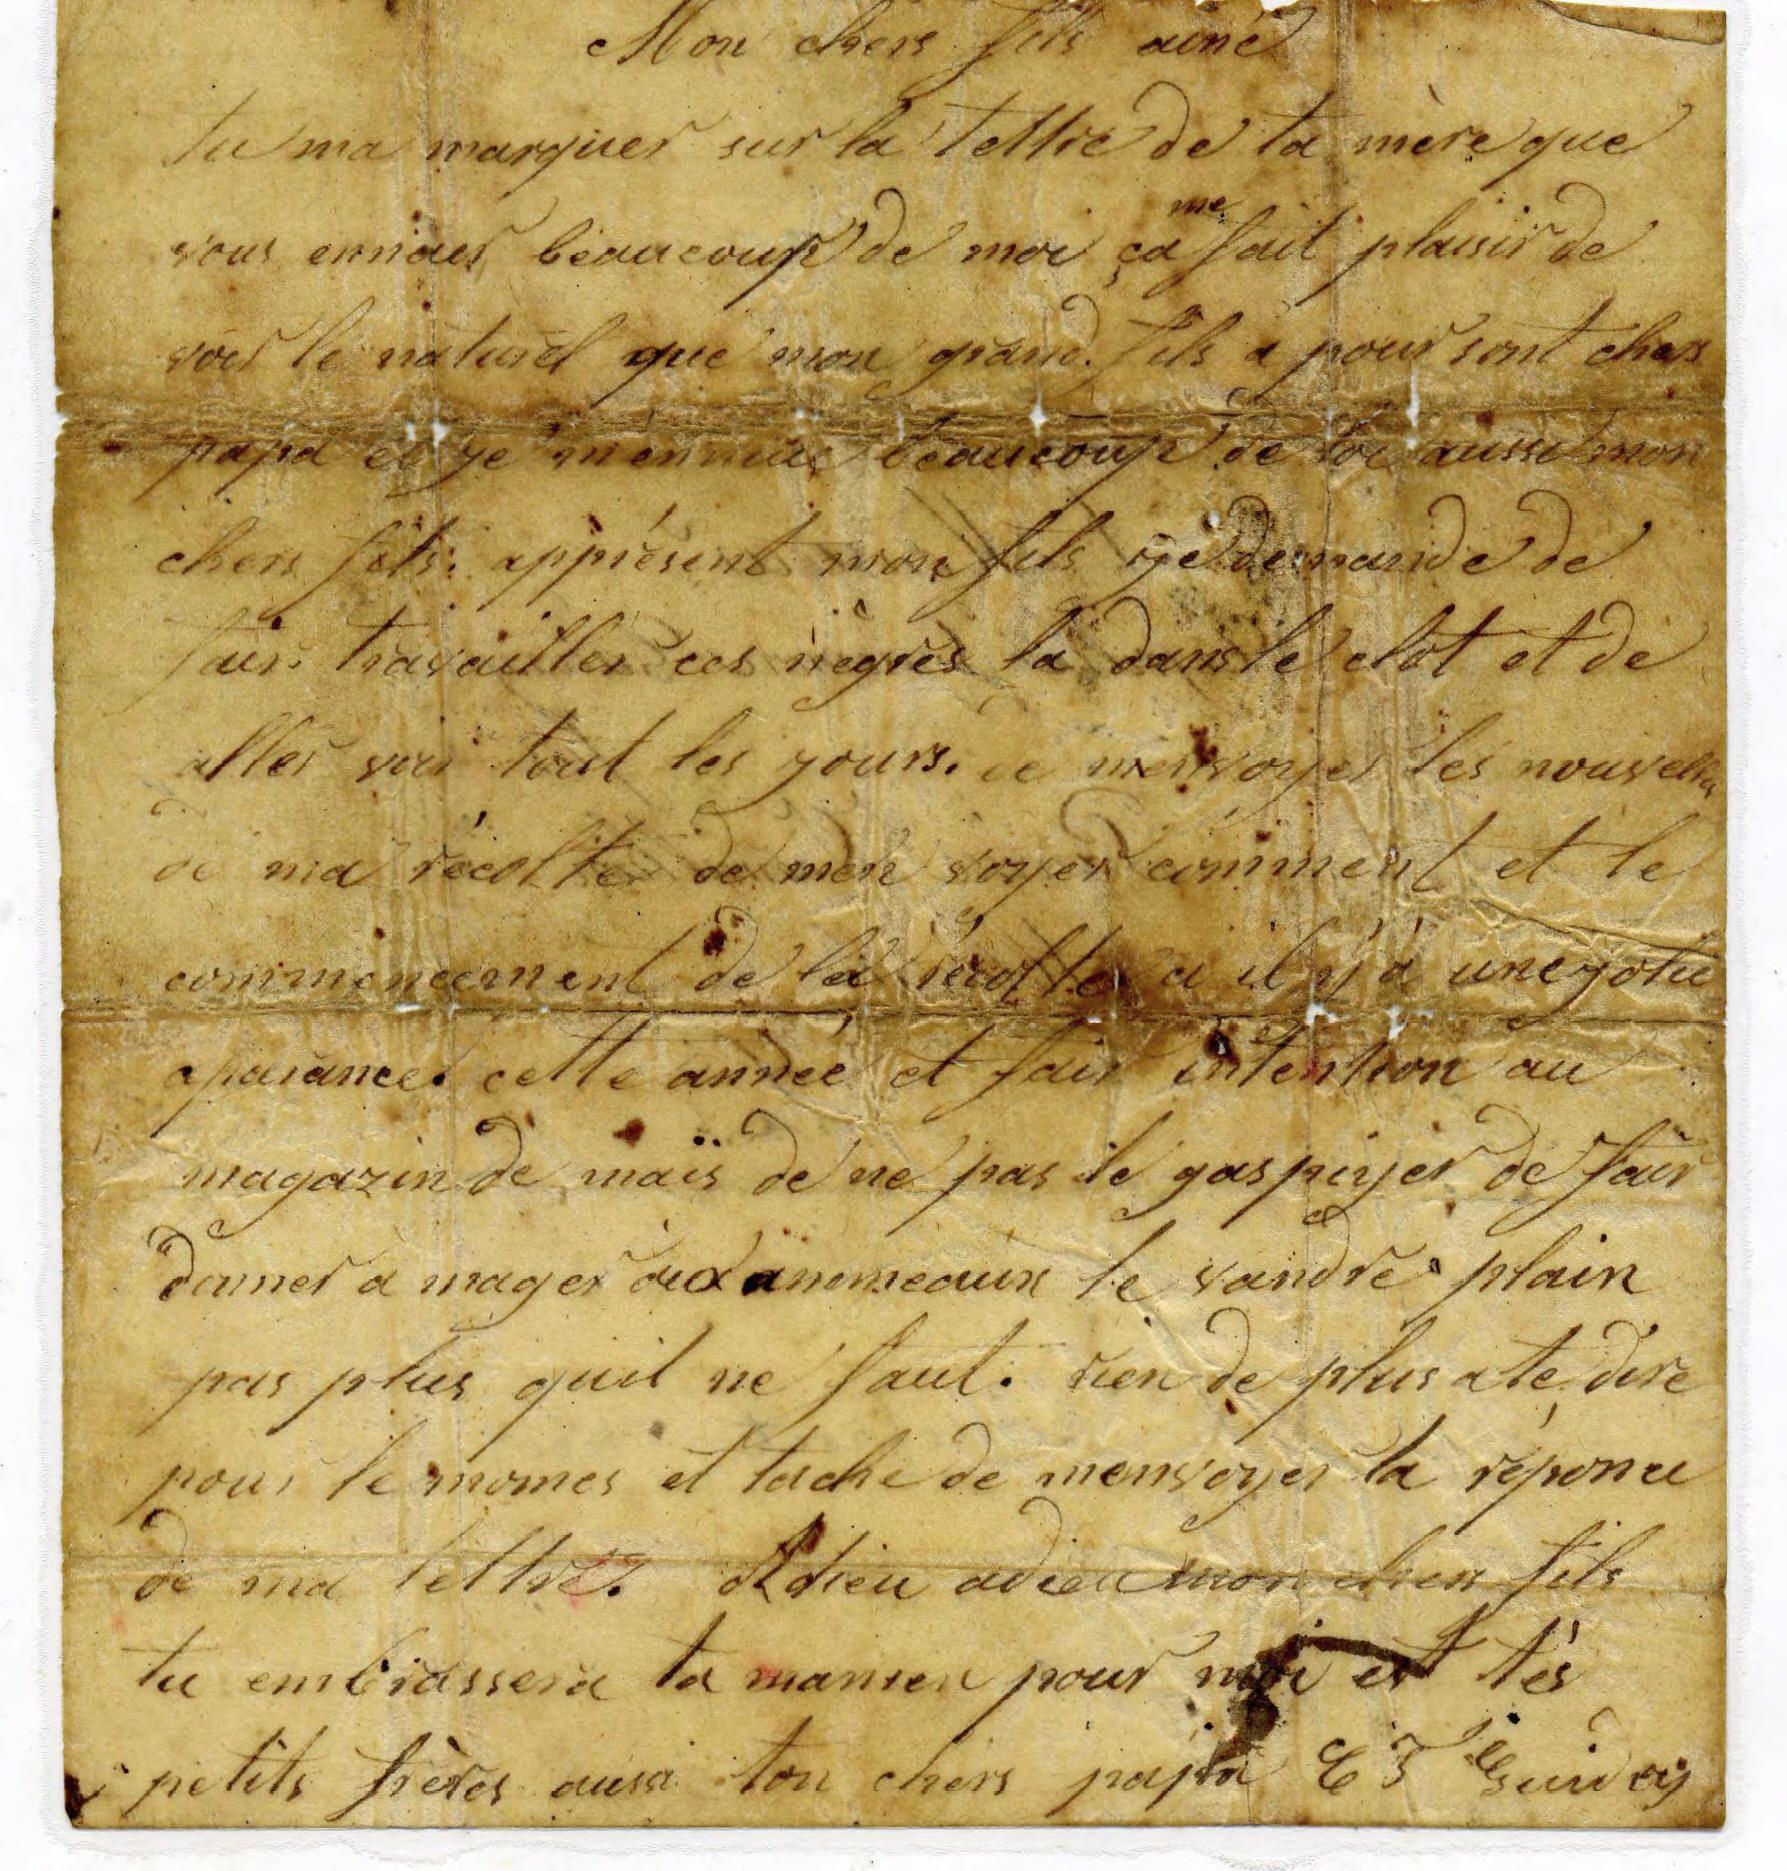 Mon chers fils ainé
tu ma marquer sur la lettre de ta mère que
vous ennuier beaucoup de moi ça me fait plaisir de
voir le naturel que mon grand fils a pour sont chers
papa et ye mennuie beaucoup de toi aussi mon
chers fils. apprésent mon fils ye demande de
fair travailler ces nègres la dans le clot et de
aller voir tout les yours. de menvoyer les nouvelles
de ma récolte de men voyer comment et le
commencement de la récolte ci il y'a une yolie
aparance. cette année et fair intention au
magazin de maïs de ne pas le gaspiyer de fair
donner a mager aux annimeaux le vandre plain
pas plus quil ne faut. rien de plus a te dire
pour le momes et tache de menvoyer la réponce
de ma lettre. Adieu adieu mon chers fils
tu embrassera ta maman pour moi et tés
petits frères aussi ton chers papa E T Guidry